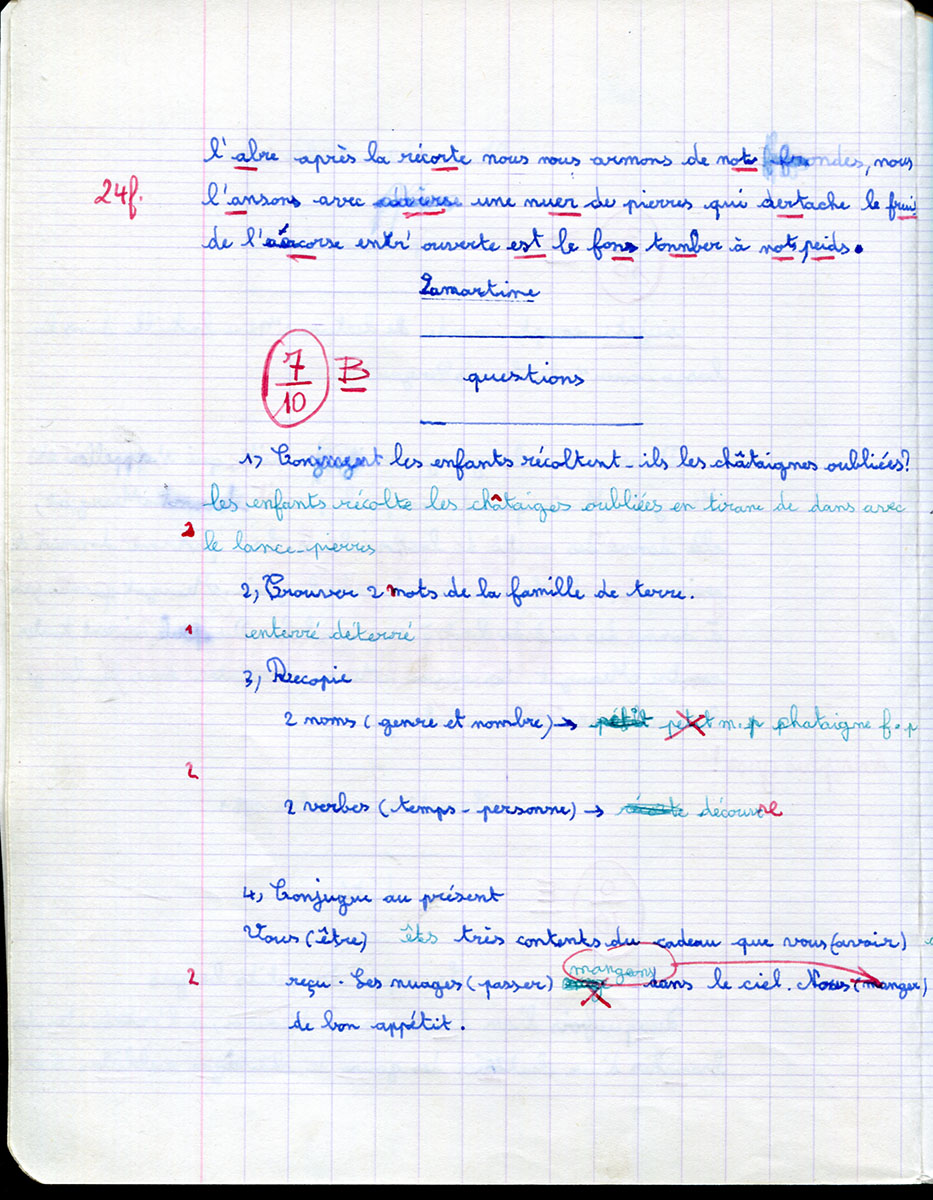 l'abre après la récorte nous nous armons de nots frondes, nous
24f. l'ansons avec une nuer de pierres qui dertache le frui
de l'écorse entr' ouverte est le fons tonnber à nots peids.
Lamartine
7/10 B
questions
1) les enfants récoltent-ils les châtaignes oubliées?
les enfants récolte les châtaiges oubliées en tirane de dans avec
2 le lance-pierres
2, Trouver 2 mots de la famille de terre.
1 enterré déterré
3, Recopie
2 noms (genre et nombre) → petit m.p chataigne f.p
2
2 verbes (temps - personne) → découvre
4, Conjugue au présent
Vous (être) êts très contents du cadeau que vous (avoir)
mangons
2 reçu. Les nuages (passer) dans le ciel. Nous (manger)
de bon appétit.